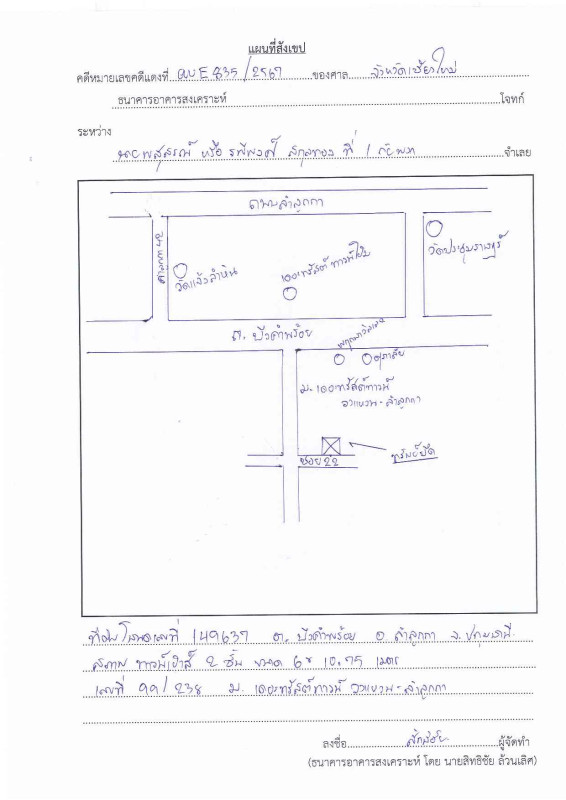 แผนที่สังเขป
คดีหมายเลขคดีแดงที่ ผบE835/2567 ของศาล จังหวัดเชียงใหม่
ธนาคารอาคารสงเคราะห์ โจทก์
ระหว่าง
หรือ ที่ 1 กับพวก จำเลย
ถนนลำลูกกา
วัดประชุมราษฎร์
เดอะทรัสต์ทาวน์โฮม
ถ. บึงคำพร้อย
พฤกษาวิลเลจ
ศุภาลัย
ม. เดอะทรัสต์ทาวน์
วงแหวน-ลำลูกกา
ทรัพย์ยึด
ซอย 22
ที่ดินโฉนดเลขที่ 149637 ต. บึงคำพร้อย อ. ลำลูกกา จ. ปทุมธานี
สภาพ ทาวน์เฮ้าส์ 2 ชั้น ขนาด 6 x 10.75 เมตร
เลขที่ 99/238 ม. เดอะทรัสต์ทาวน์ วงแหวน-ลำลูกกา
ลงชื่อ ผู้จัดทำ
(ธนาคารอาคารสงเคราะห์ โดย นายสิทธิชัย ล้วนเลิศ)